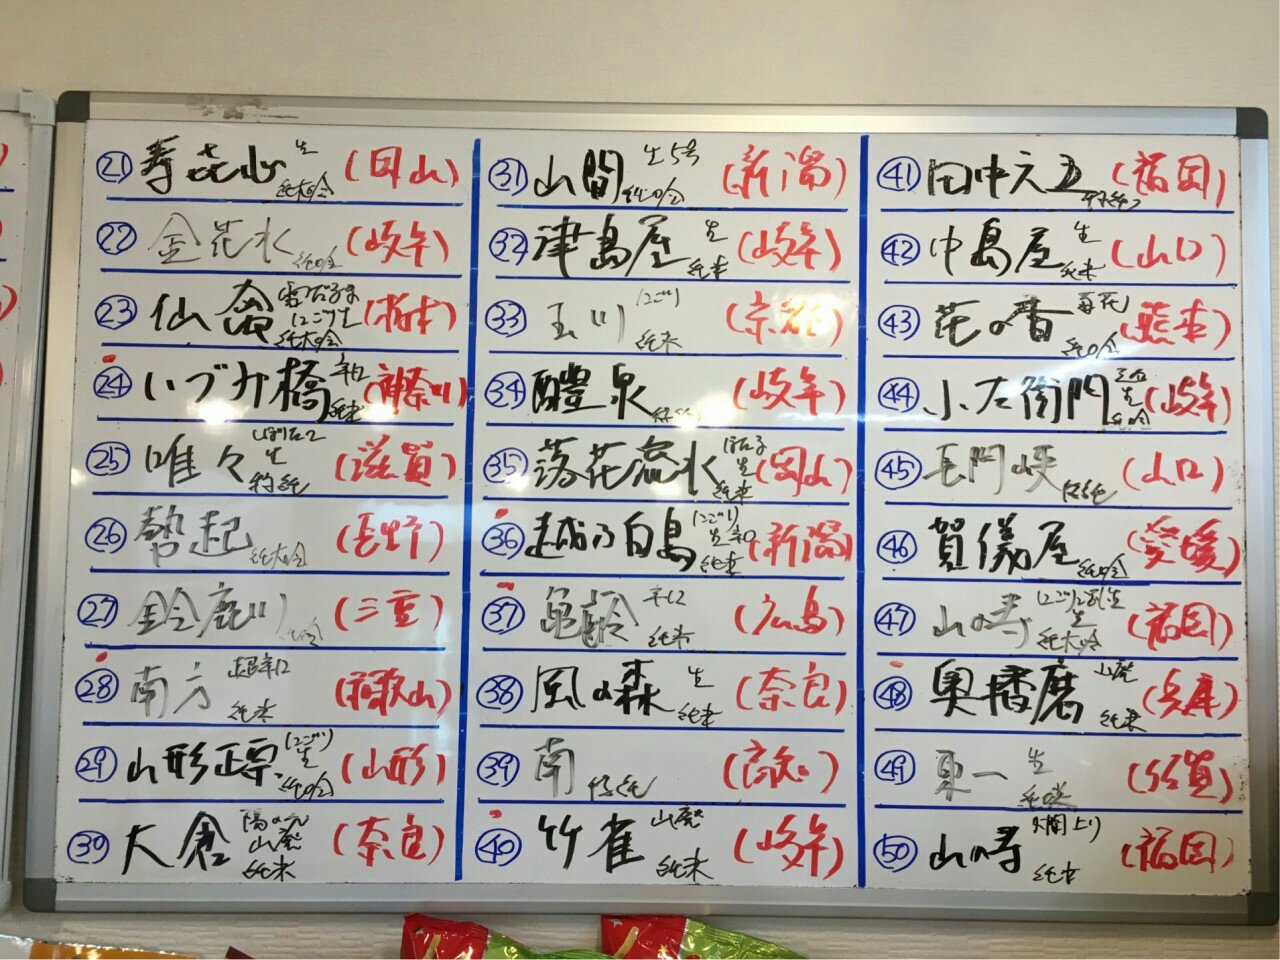 ㉑ 寿花心 生 純大吟 (岡山)
㉒ 金花水 純吟 (岐阜)
㉓ 仙禽 雪だるま にごり生 純大吟 (栃木)
㉔ いづみ橋 辛口 純米 (神奈川)
㉕ 唯々 しぼりたて 生 特純 (滋賀)
㉖ 勢起 純大吟 (長野)
㉗ 鈴鹿川 純吟 (三重)
㉘ 南方 超辛口 純米 (和歌山)
㉙ 山形正宗 にごり 生 純吟 (山形)
㉚ 大倉 陽の光 山廃 純米 (奈良)
㉛ 山間 生 5号 純吟 (新潟)
㉜ 津島屋 生 純米 (岐阜)
㉝ 玉川 にごり 純米 (京都)
㉞ 醴泉 特純 (岐阜)
㉟ 落花流水 生 純米 (岡山)
㊱ 越乃白鳥 (にごり) 生 純米 (新潟)
㊲ 亀齢 辛口 純米 (広島)
㊳ 風の森 生 純米 (奈良)
㊴ 南 特純 (高知)
㊵ 竹雀 山廃 純米 (岐阜)
㊶ 田中六五 (福岡)
㊷ 中島屋 生 純米 (山口)
㊸ 花の香 菊花 純吟 (熊本)
㊹ 小左衛門 生 純吟 (岐阜)
㊺ 長門峡 特純 (山口)
㊻ 賀儀屋 純吟 (愛媛)
㊼ 山の寿 生 純大吟 (福岡)
㊽ 奥播磨 山廃 純米 (兵庫)
㊾ 東一 生 純米 (佐賀)
㊿ 山の寿 純米 (福岡)